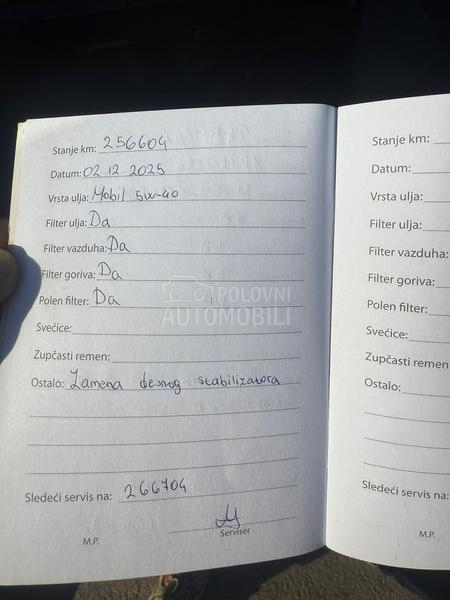 Stanje km: 256604
Datum: 02.12.2025
Vrsta ulja: Mobil 5w-40
Filter ulja: Da
Filter vazduha: Da
Filter goriva: Da
Polen filter: Da
Svećice:
Zupčasti remen:
Ostalo: Zamena desnog stabilizatora
Sledeći servis na: 266704
M.P.
Serviser
POLOVNI
AUTOMOBILI
Stanje km:
Datum:
Vrsta ulja:
Filter ulja:
Filter vazduha:
Filter goriva:
Polen filter:
Svećice:
Zupčasti remen:
Ostalo:
Sledeći servis na:
M.P.